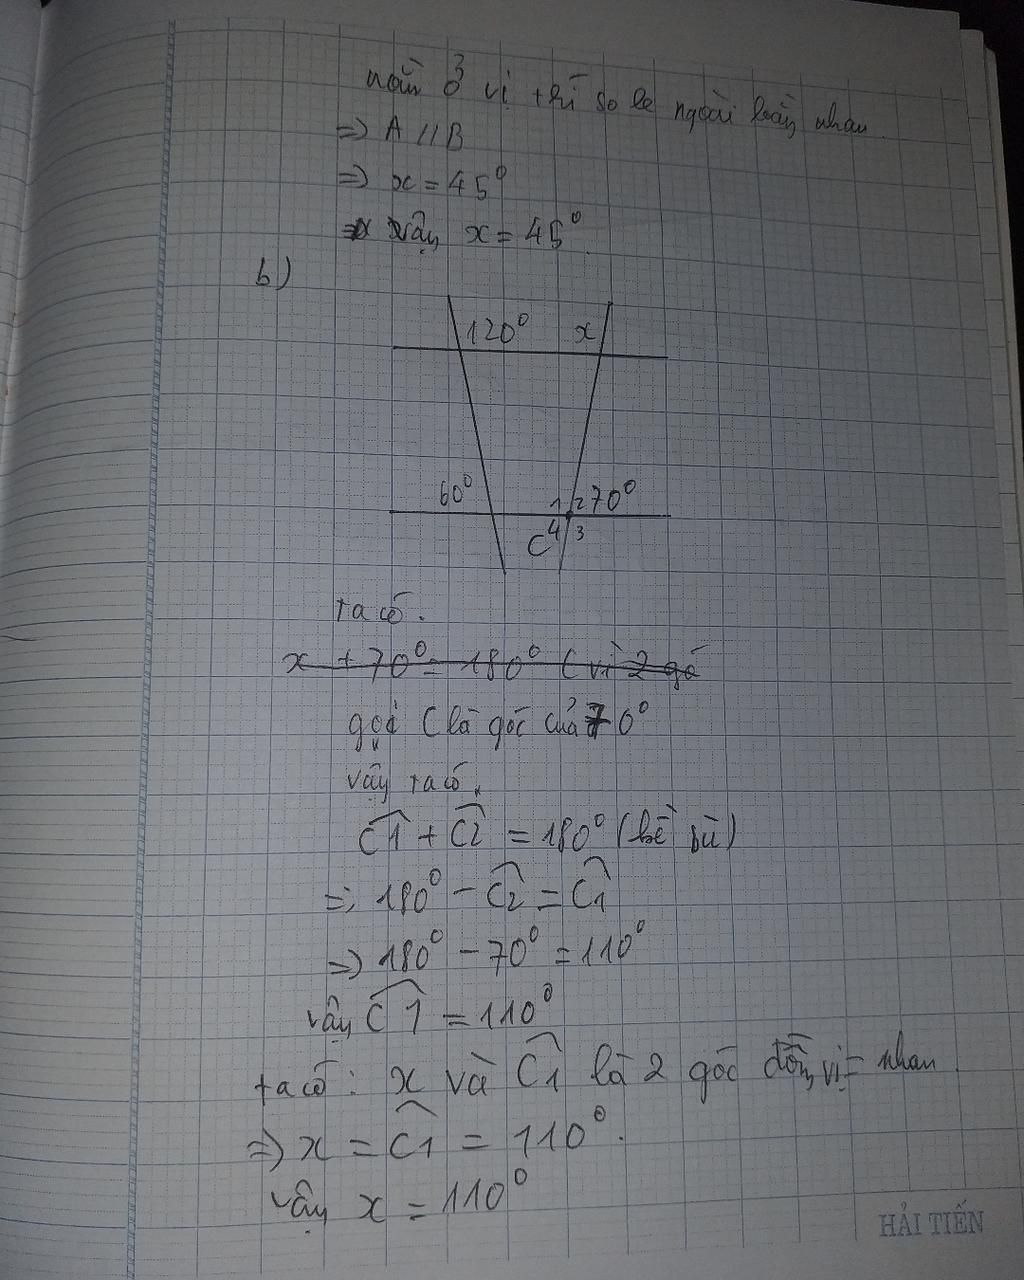 ở vị trí so le ngoài bằng nhau.
=> A // B
=> x = 45°
vậy x = 45°.
b)
120° x
60° 1 2 70°
C 4 3
ta có.
x + 70° = 180° ( vì 2 gó
gọi C là góc của 70°
vậy ta có.
C1 + C2 = 180° (kề bù)
=> 180° - C2 = C1
=> 180° - 70° = 110°
vậy C1 = 110°
ta có: x và C1 là 2 góc đồng vị = nhau
=> x = C1 = 110°.
vậy x = 110°
HẢI TIẾN